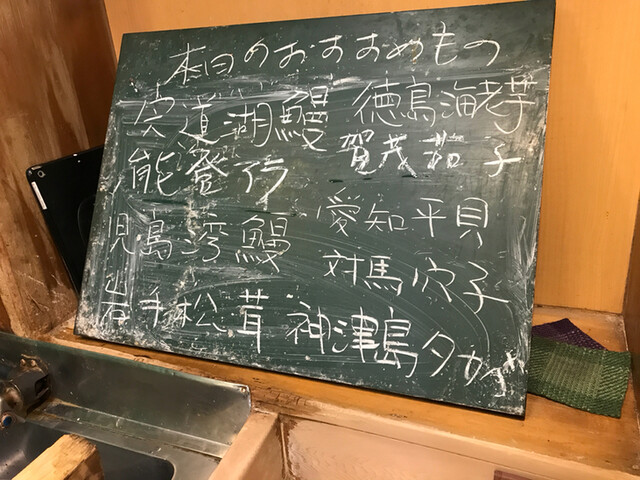 本日のおすすめもの
宍道湖鰻
能登
児島湾鰻
岩手松茸
徳島海老芋
賀茂茄子
愛知平貝
対馬穴子
神津島タカベ